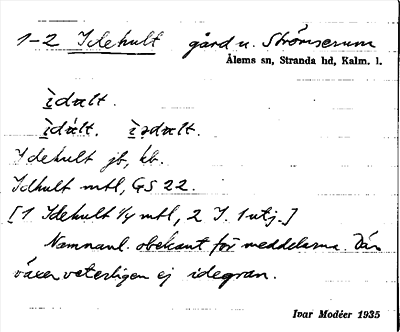 1-2 Idehult gård u. Strömserum
Ålems sn, Stranda hd, Kalm. l.
ìdælt.
ìdǽlt. ìədælt.
Idehult jb, kb.
Idhult mtl, GS 22.
[1 Idehult 1/4 mtl, 2 I. 1 utj.]
Namnanl. obekant för meddelarna. Där
växer veterligen ej idegran.
Ivar Modéer 1935